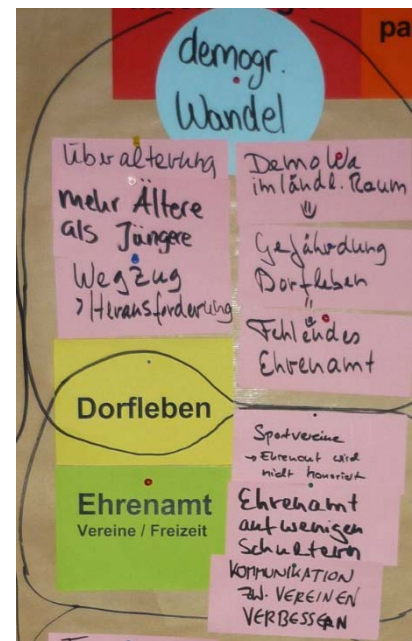 pa
demogr.
Wandel
Überalterung
mehr Ältere
als Jüngere
Wegzug
> Heransforderung
DemoWa
im ländl. Raum
⇓
Gefährdung
Dorfleben
Fehlendes
Ehrenamt
Dorfleben
Sportvereine
→ Ehrenamt wird
nicht honoriert
Ehrenamt
Vereine / Freizeit
Ehrenamt
auf wenigen
Schultern
KOMMUNIKATION
ZW. VEREINEN
VERBESSERN